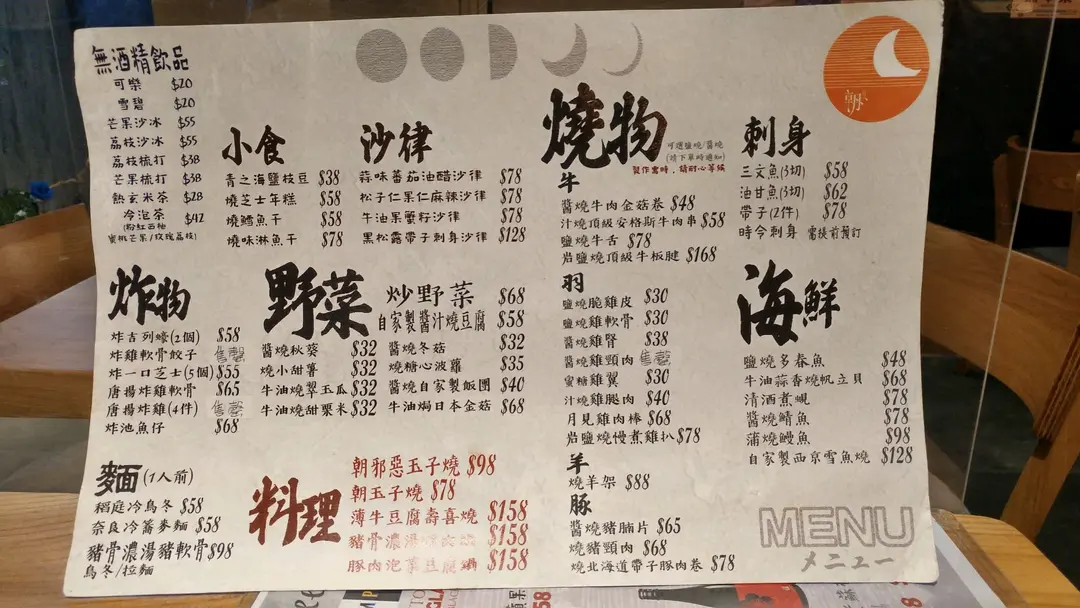 無酒精飲品
可樂 $20
雪碧 $20
芒果沙冰 $55
荔枝沙冰 $55
荔枝梳打 $38
芒果梳打 $38
熱玄米茶 $28
冷泡茶 $42
(粉紅西柚
蜜桃芒果/玫瑰荔枝)
小食
青之海鹽枝豆 $38
燒芝士年糕 $58
燒鱈魚干 $58
燒味淋魚干 $78
沙律
蒜味蕃茄油醋沙律 $78
松子仁果仁麻辣沙律 $78
牛油果粟籽沙律 $78
黑松露帶子刺身沙律 $128
燒物
可選鹽燒/醬燒
(請下單時通知)
製作需時，請耐心等候
牛
醬燒牛肉金菇卷 $48
汁燒頂級安格斯牛肉串 $58
鹽燒牛舌 $78
岩鹽燒頂級牛板腱 $168
羽
鹽燒脆雞皮 $30
鹽燒雞軟骨 $30
鹽燒雞腎 $38
醬燒雞頸肉 售罄
蜜糖雞翼 $30
汁燒雞腿肉 $40
月見雞肉棒 $68
岩鹽燒慢煮雞扒 $78
羊
燒羊架 $88
豚
醬燒豬腩片 $65
燒豬頸肉 $68
燒北海道帶子豚肉卷 $78
刺身
三文魚(3切) $58
油甘魚(3切) $62
帶子(2件) $78
時令刺身 需提前預訂
海鮮
鹽燒多春魚 $48
牛油蒜香燒帆立貝 $68
清酒煮蜆 $78
醬燒鯖魚 $78
蒲燒鰻魚 $98
自家製西京雪魚燒 $128
炸物
炸吉列蠔(2個) $58
炸雞軟骨餃子 售罄
炸一口芝士(5個) $55
唐揚炸雞軟骨 $65
唐揚炸雞(4件) 售罄
炸池魚仔 $68
野菜
炒野菜 $68
自家製醬汁燒豆腐 $58
醬燒秋葵 $32
燒小甜薯 $32
牛油燒翠玉瓜 $32
牛油燒甜粟米 $32
醬燒冬菇 $32
燒糖心波蘿 $35
醬燒自家製飯團 $40
牛油焗日本金菇 $68
麵(1人前)
稻庭冷烏冬 $58
奈良冷蕎麥麵 $58
豬骨濃湯豬軟骨 $98
烏冬/拉麵
料理
朝邪惡玉子燒 $98
朝玉子燒 $78
薄牛豆腐壽喜燒 $158
豬骨濃湯 $158
豚肉泡菜豆腐鍋 $158
MENU
メニュー